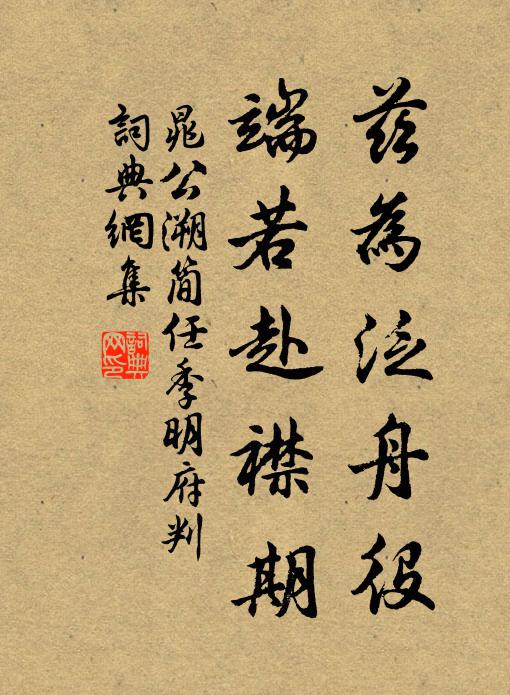 茲為泛舟役
端若赴襟期
晁公溯簡任季明府判
詞典網集
詞典網印